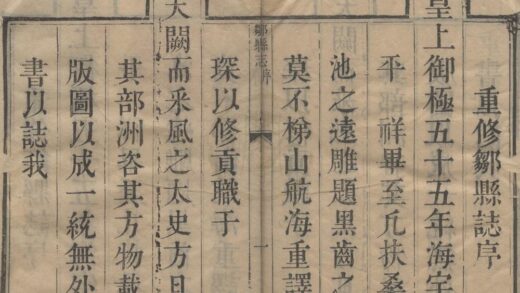 重修鄒縣誌序
皇上御極五十五年海宇
平祥畢至凡扶桑
池之遠雕題黑齒之
莫不梯山航海重譯
鄒縣志序
一
琛以修貢職于
大闕而釆風之太史方日
其部洲咨其方物載
版圖以成一統無外
書以誌我